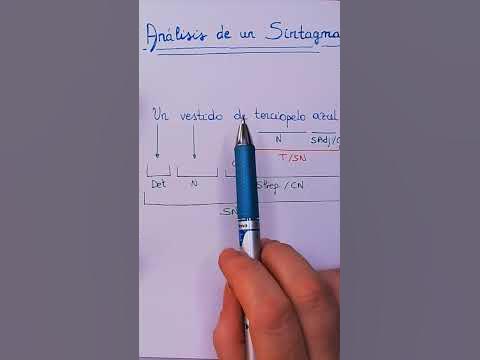 Análisis de un Sintagma
Un vestido de terciopelo azul
N SAdj/C
T/SN
Det N SPrep/CN
SN